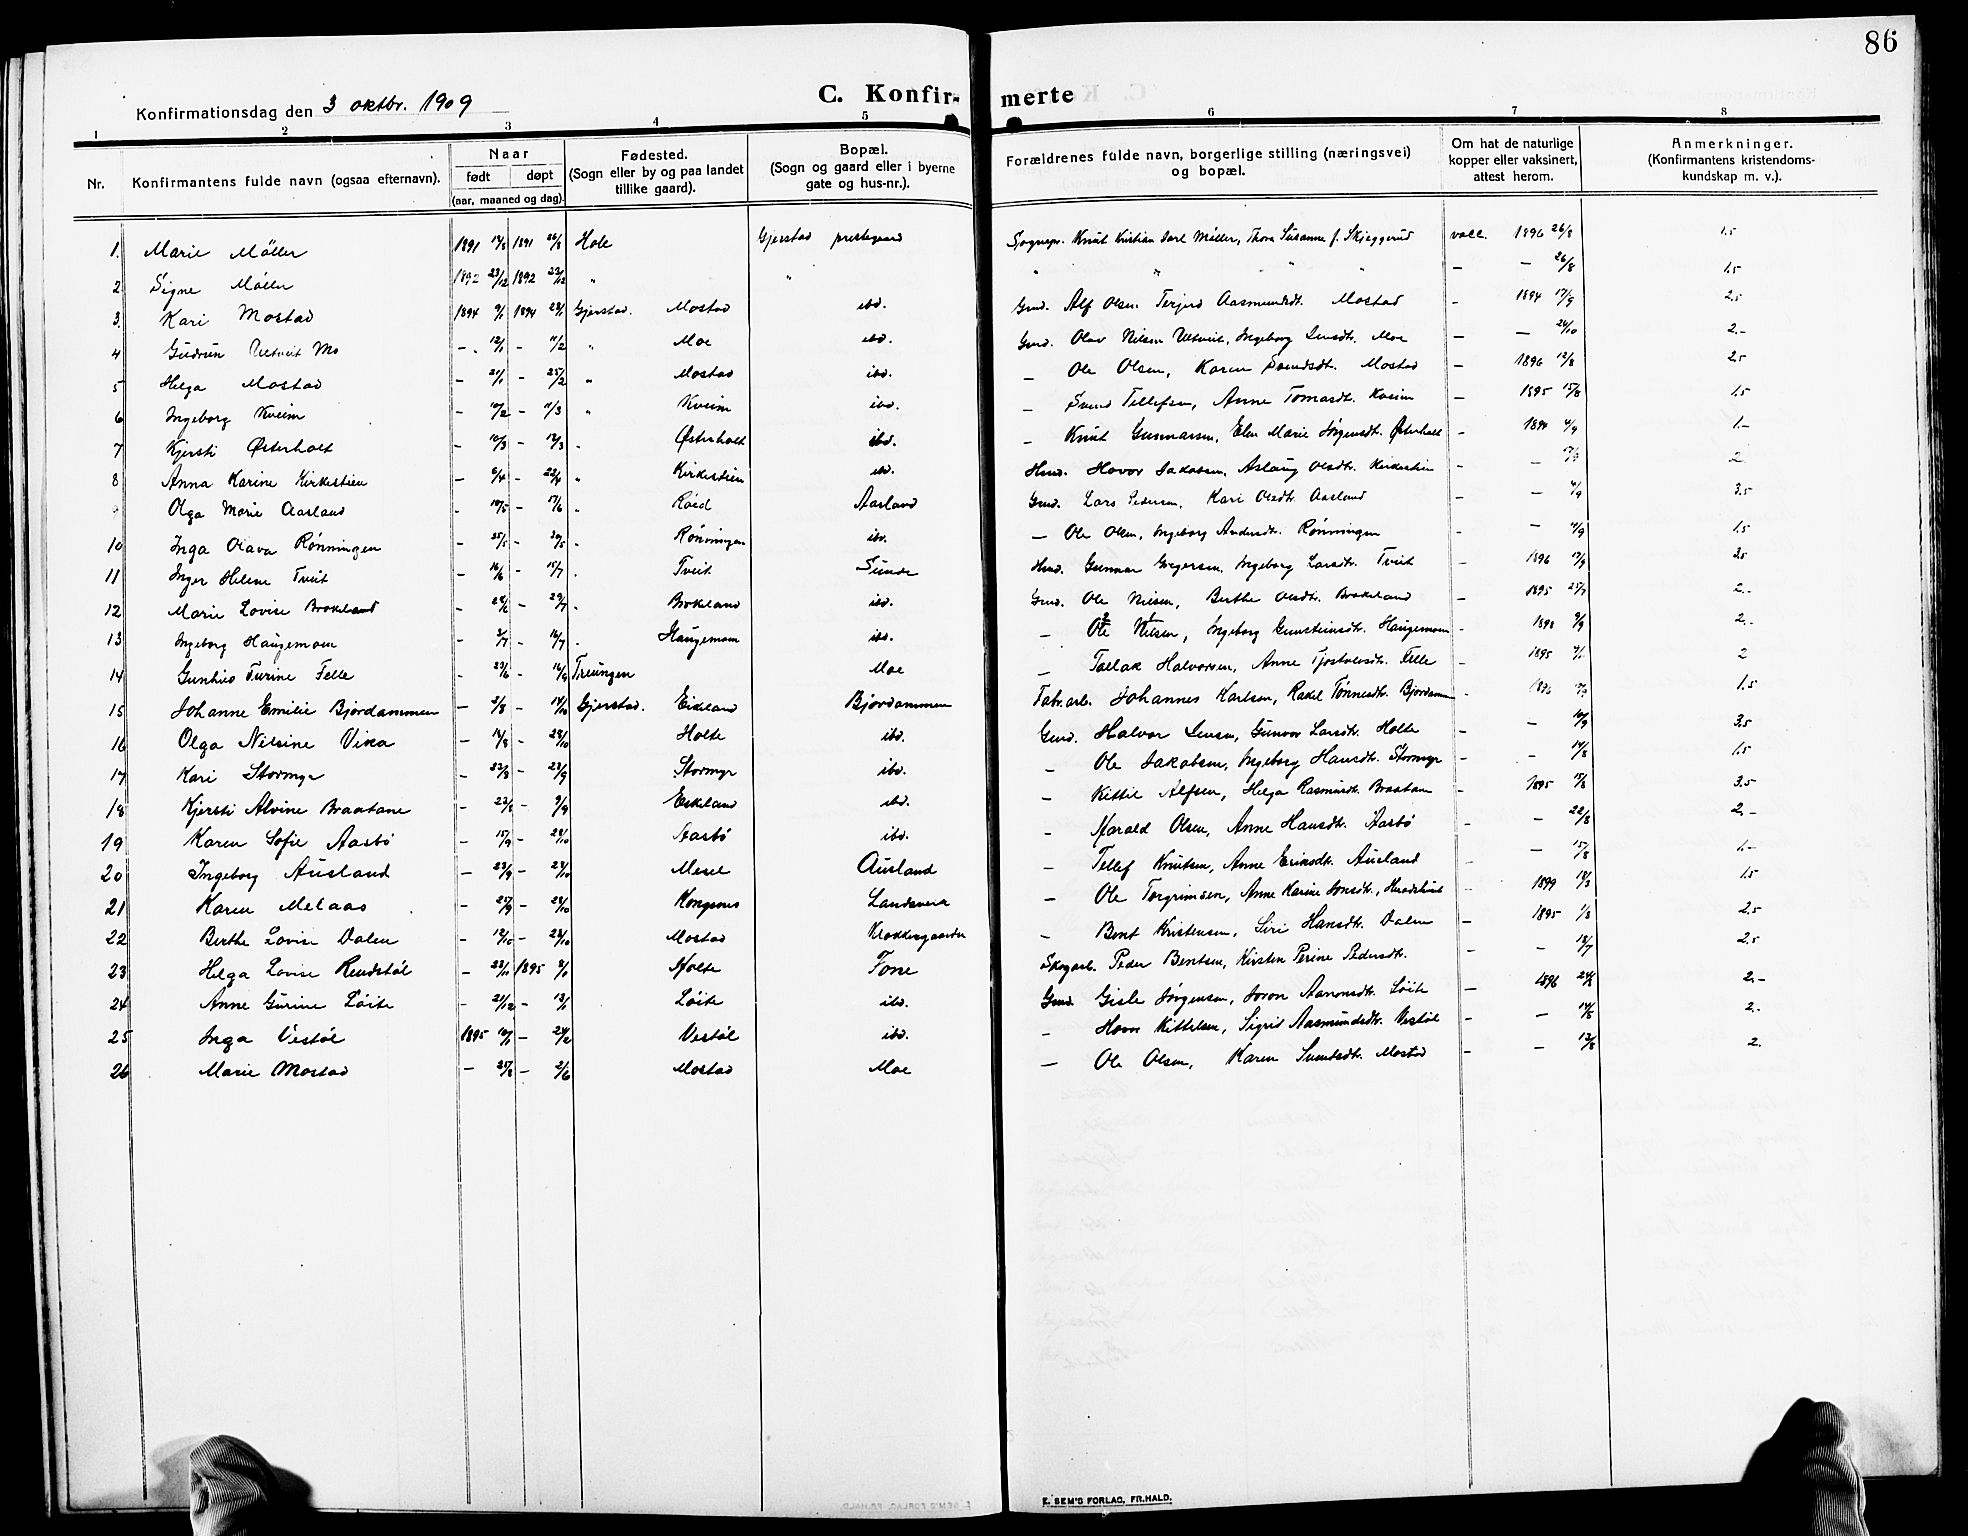 86
Konfirmationsdag den 3 oktbr. 1909
C. Konfir- merte
1 2 3 4 5 6 7 8
Nr. Konfirmantens fulde navn (ogsaa efternavn). Naar født døpt (aar, maaned og dag). Fødested. (Sogn eller by og paa landet tillike gaard). Bopæl. (Sogn og gaard eller i byerne gate og hus-nr.). Forældrenes fulde navn, borgerlige stilling (næringsvei) og bopæl. Om hat de naturlige kopper eller vaksinert, attest herom. Anmerkninger. (Konfirmantens kristendoms-kundskap m. v.).
1. Marie Møller 1891 17/8 1891 26/8 Hole Gjerstad prestegaard Sognepr. Knut Kristian Carl Møller, Thora Susanne f. Skjeggerud vacc. 1896 26/8 1.5
2 Signe Møller 1892 23/12 1892 23/12 " " " " " " — — 26/8 1.5
3. Kari Mostad 1894 9/1 1894 28/1 Gjerstad. Mostad ibd. Grd. Alf Olsen Terjerd Aasmundsdt. Mostad - 1894 17/9 2.5
4 Gudrun Ultveit Mo — 12/1 - 11/2 " Moe ibd. Grd. Olav Nilsen Ultveit, Ingeborg Jensdt. Moe — — 26/10 2.-
5 Helga Mostad — 21/1 - 25/2 " Mostad ibd. — Ole Olsen, Karen Svendsdt. Mostad — 1896 12/8 2.5
6 Ingeborg Kveim — 10/2 — 11/3 " Kveim ibd. — Svend Tellefsen, Anne Tomasdt. Kveim — 1895 15/8 1.5
7 Kjersti Østerholt — 10/3 — 12/3 " Østerholt ibd. — Knut Gunnarsen, Elen Marie Jørgensdt. Østerholt — 1894 4/9 1.-
8 Anna Karine Kirkestien — 6/4 — 22/4 " Kirkestien ibd. Hmd. Havor Jakobsen, Aslaug Olsdt. Kirkestien — — 17/9 2
9 Olga Marie Aasland - 10/5 - 17/6 " Røed Aasland Grd. Lars Pedersen, Kari Olsdt. Aasland - — 4/9 3.5
10 Inga Olava Rønningen — 25/5 — 20/5 " Rønningen ibd. — Ole Olsen, Ingeborg Andersdt. Rønningen - — 4/9 1.5
11 Inger Helene Tveit — 16/6 — 15/7 . Tveit Sunde Hmd. Gunnar Gregersen, Ingeborg Larsdt. Tveit — 1896 17/9 2.5
12 Marie Lovise Brokeland — 22/6 — 29/7 . Brokeland ibd. Grd. Ole Nilsen, Berthe Olsdt. Brokeland — 1895 25/7 2.-
13 Ingeborg Haugemoen - 3/7 - 16/7 . Haugemoen ibd. — Ole Nilsen, Ingeborg Gunsteinsdt. Haugemoen - 1898 9/9 2.-
14 Gunhild Turine Felle — 23/6 - 16/9 Treungen Moe — Tallak Halvorsen, Anne Tjostolvsdt. Felle — 1895 2
15 Johanne Emilie Bjordammen — 2/8 — 14/10 Gjerstad. Eikeland Bjordammen Fabr.arb. Johannes Karlsen, Rakel Tønnesdt. Bjordammen - 1.5
16 Olga Nilsine Vika — 14/8 — 28/10 Holte ibd. Grd. Halvor Jensen, Gunvor Larsdt. Holte - — 10/9 3.5
17 Kari Stormyr — 22/8 — 23/9 Stormyr ibd. — Ole Jakobsen, Ingeborg Hansdt. Stormyr - — 14/8 1.5
18 Kjersti Alvine Braatane — 22/8 — 9/9 Eskeland ibd. — Kittil Alfsen, Helga Rasmusdt. Braatane - 1895 15/8 3.5
19 Karen Sofie Aasbø - 15/9 - 28/10 Aasbø ibd. — Harald Olsen, Anne Hansdt. Aasbø - — 22/8 2.-
20 Ingeborg Ausland — 23/9 — 28/10 Mesel Ausland — Tellef Knutsen, Anne Eriksdt. Ausland - — 15/8 1.-
21 Karen Melaas — 25/9 — 28/10 Kongsnes Landsvera — Ole Torgrimsen, Anne Karine Jonsdt., - 1899 18/3 1.5
22 Berthe Lovise Dalen — 12/10 — 28/10 Mostad Klokkergaarden — Bent Kristensen, Siri Hansdt. Dalen — 1895 1/8 2.5
23 Helga Lovise Rendstøl — 23/11 1895 Holte Fone Skogarb. Peder Bentsen, Kirsten Perine Pedersdt. - — 18/7 2.5
24 Anne Gurine Løite — 21/12 — 13/1 Løite ibd. Grd. Gisle Jørgensen, Joron Aanonsdt. Løite — 1896 2.-
25 Inga Vestøl 1895 — 24/2 Vestøl ibd. — Haavor Kittelsen, Sigrid Aasmundsdt. Vestøl - — 14/5 2.-
26 Marie Mostad — — 2/6 Mostad Moe — Ole Olsen, Karen Svendsdt. Mostad - — 13/8 2.
E. SEM'S FORLAG, FR.HALD.